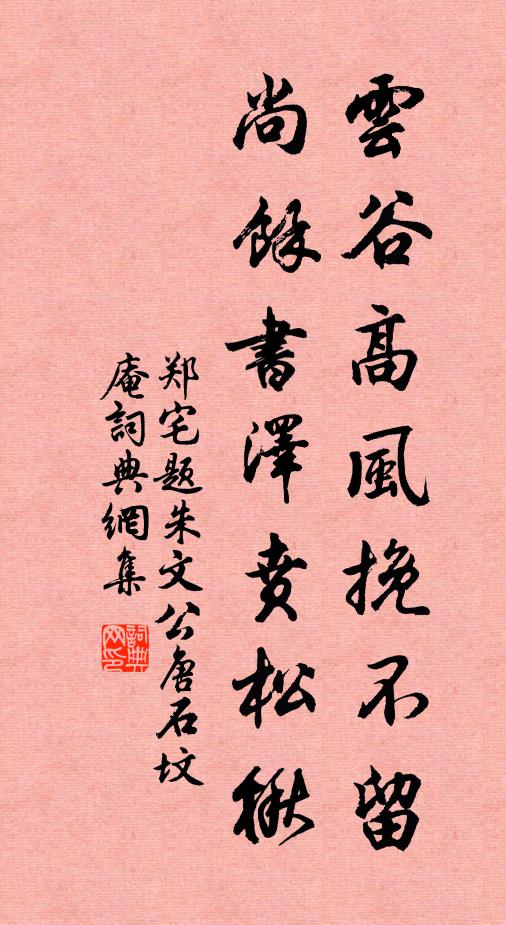 雲谷高風挽不留
尚餘書澤賁松楸
郑宅题朱文公唐石坟
庵詞典網集
詞典网印